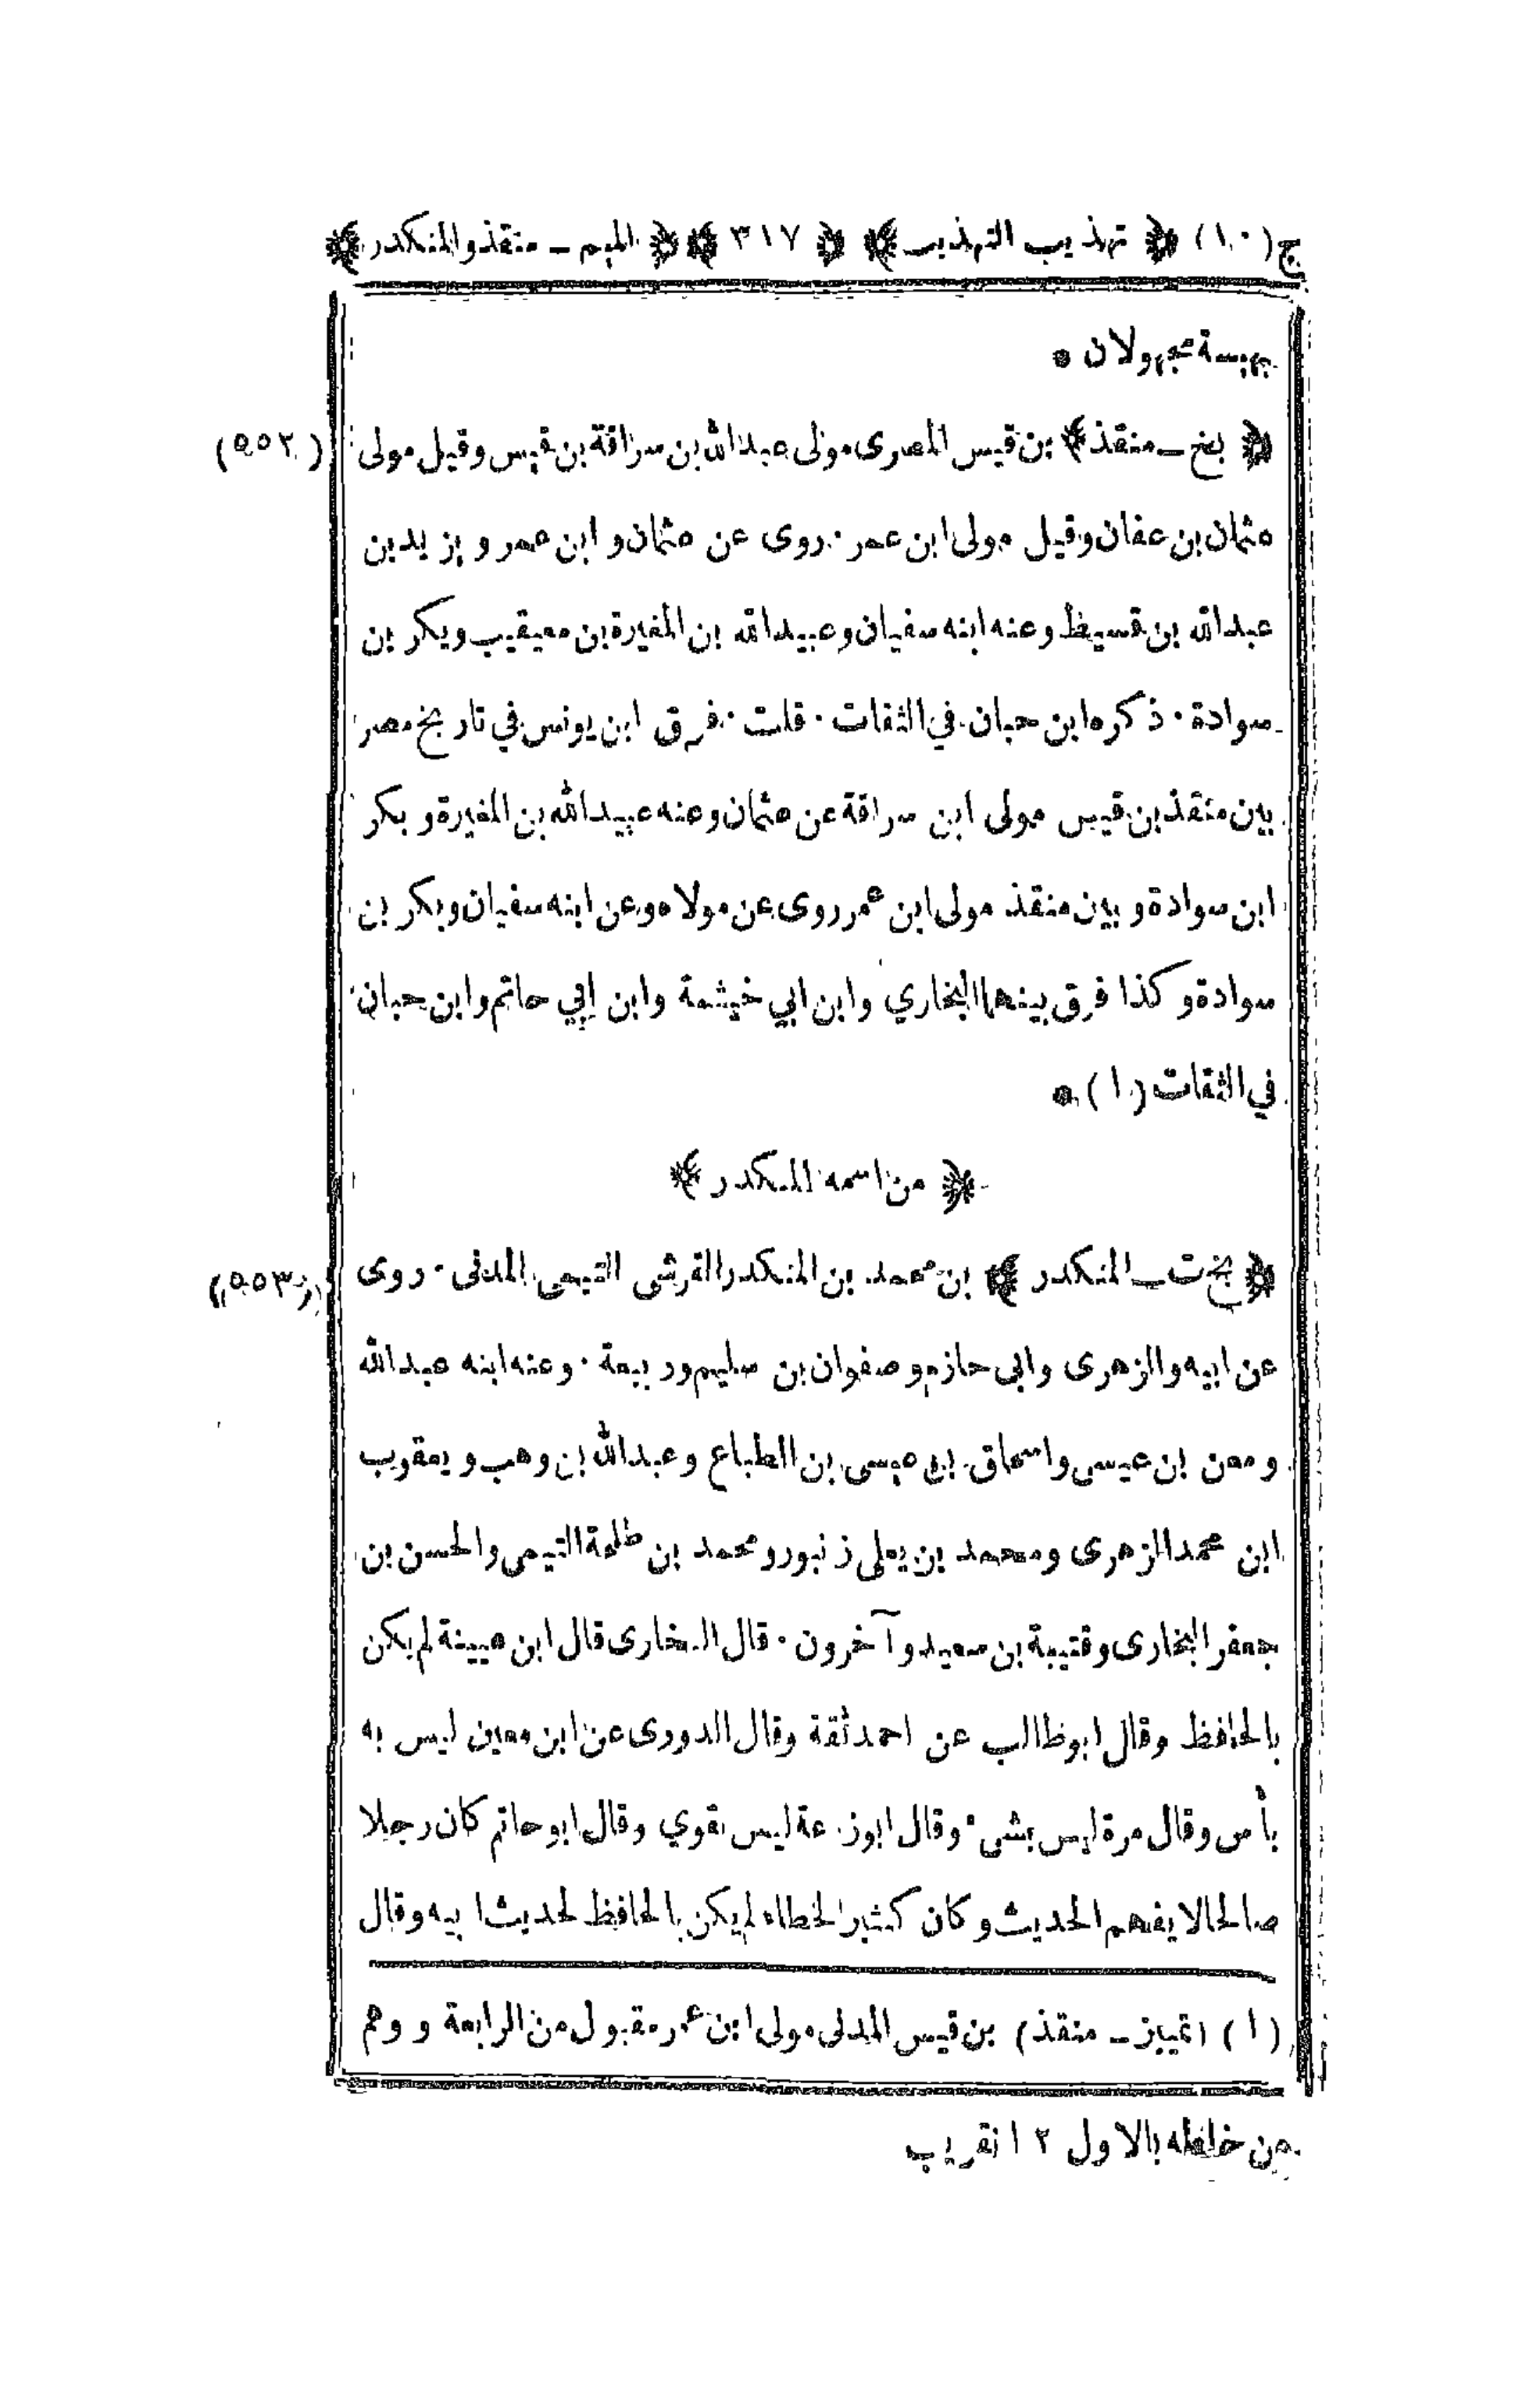 ج (١٠) ﴿ تهذيب التهذيب ﴾ ﴿ ٣١٧ ﴾ ﴿ الميم ـ منقذ والمنكدر ﴾
بهيسة مجهولان •
(٥٥٢) ﴿ بخ ـ منقذ ﴾ بن قيس المصرى مولى عبدالله بن سراقة بن قيس وقيل مولى
عثمان بن عفان وقيل مولى ابن عمر . روى عن عثمان وابن عمر ويزيد بن
عبدالله بن قسيط وعنه ابنه سفيان وعبيدالله بن المغيرة بن معيقيب وبكر بن
سوادة . ذكره ابن حبان في الثقات . قلت . فرق ابن يونس في تاريخ مصر
بين منقذ بن قيس مولى ابن سراقة عن عثمان وعنه عبيدالله بن المغيرة وبكر
ابن سوادة وبين منقذ مولى ابن عمر روى عن مولاه وعن ابنه سفيان وبكر بن
سوادة وكذا فرق بينهما البخاري وابن ابي خيثمة وابن ابي حاتم وابن حبان
في الثقات (١) •
﴿ من اسمه المنكدر ﴾
(٥٥٣) ﴿ بخ ت ـ المنكدر ﴾ بن محمد بن المنكدر القرشى التيمى المدنى . روى
عن ابيه والزهرى وابى حازم وصفوان بن سليم وربيعة . وعنه ابنه عبدالله
ومعن بن عيسى واسحاق بن عيسى بن الطباع وعبدالله بن وهب ويعقوب
ابن محمد الزهرى ومحمد بن يعلى زنبور ومحمد بن طلحة التيمى والحسن بن
جعفر البخارى وقتيبة بن سعيد وآخرون . قال البخارى قال ابن عيينة لم يكن
بالحافظ وقال ابو طالب عن احمد ثقة وقال الدورى عن ابن معين ليس به
بأس وقال مرة ليس بشىء وقال ابو زرعة ليس بقوي وقال ابو حاتم كان رجلا
صالحا لا يفهم الحديث وكان كثير الخطاء لم يكن بالحافظ لحديث ابيه وقال
(١) (تمييز ـ منقذ) بن قيس المدنى مولى ابن عمر مقبول من الرابعة ووهم
من خلطه بالاول ١٢ تقريب